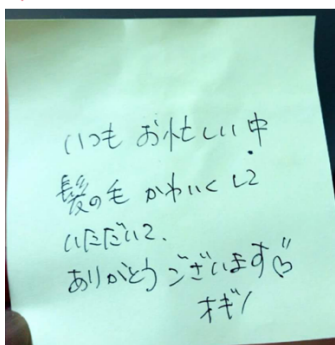 いつも お忙しい中
髪の毛 かわいくして
いただいて、
ありがとうございます♡
オギノ